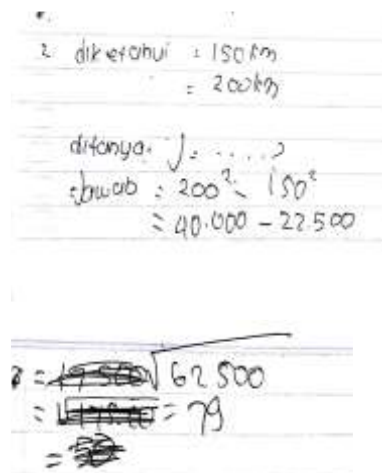 2. diketahui : 150 km
= 200 km
ditanya. J : .....?
Jawab : 200² - 150²
= 40.000 - 22.500
= √62500
= 79
=